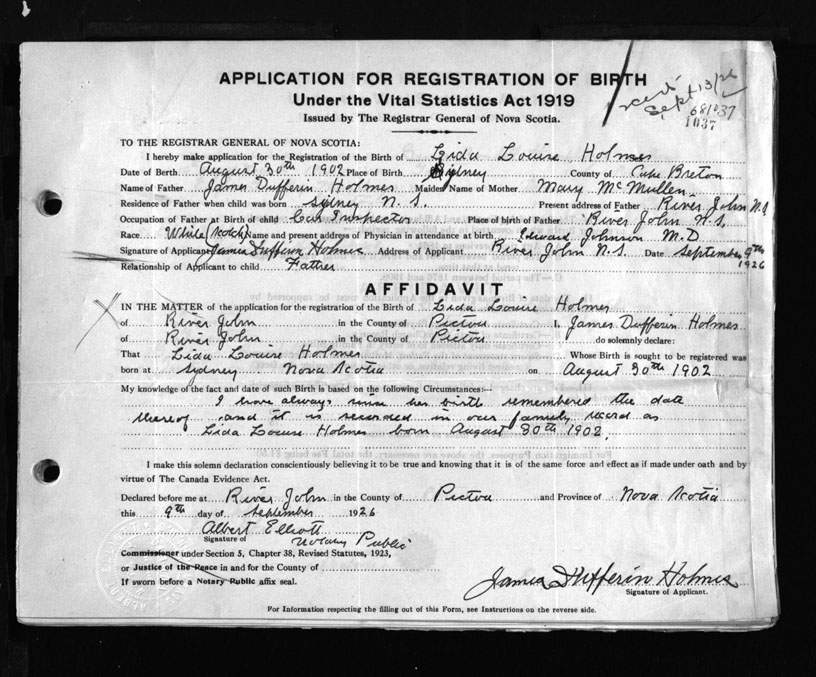 APPLICATION FOR REGISTRATION OF BIRTH
Under the Vital Statistics Act 1919
Issued by The Registrar General of Nova Scotia.
Sept 13/26
681037
1037
TO THE REGISTRAR GENERAL OF NOVA SCOTIA:
I hereby make application for the Registration of the Birth of Lida Louise Holmes
Date of Birth August 30th 1902 Place of Birth Sydney County of Cape Breton
Name of Father James Dufferin Holmes Maiden Name of Mother Mary McMullen
Residence of Father when child was born Sydney N.S. Present address of Father River John N.S
Occupation of Father at Birth of child Car Inspector Place of birth of Father River John N.S.
Race White (Scotch) Name and present address of Physician in attendance at birth Edward Johnson M.D.
Signature of Applicant James Dufferin Holmes Address of Applicant River John N.S Date September 9th 1926
Relationship of Applicant to child Father
AFFIDAVIT
IN THE MATTER of the application for the registration of the Birth of Lida Louise Holmes
of River John in the County of Pictou I, James Dufferin Holmes
of River John in the County of Pictou do solemnly declare:
That Lida Louise Holmes Whose Birth is sought to be registered was
born at Sydney Nova Scotia on August 30th 1902
My knowledge of the fact and date of such Birth is based on the following Circumstances:--
I have always since her birth remembered the date
thereof and it is recorded in our family record as
Lida Louise Holmes born August 30th 1902.
I make this solemn declaration conscientiously believing it to be true and knowing that it is of the same force and effect as if made under oath and by
virtue of The Canada Evidence Act.
Declared before me at River John in the County of Pictou and Province of Nova Scotia
this 9th day of September 1926
Albert Elliott
Signature of Notary Public
Commissioner under Section 5, Chapter 38, Revised Statutes, 1923,
or Justice of the Peace in and for the County of
If sworn before a Notary Public affix seal.
James Dufferin Holmes
Signature of Applicant.
For Information respecting the filling out of this Form, see Instructions on the reverse side.